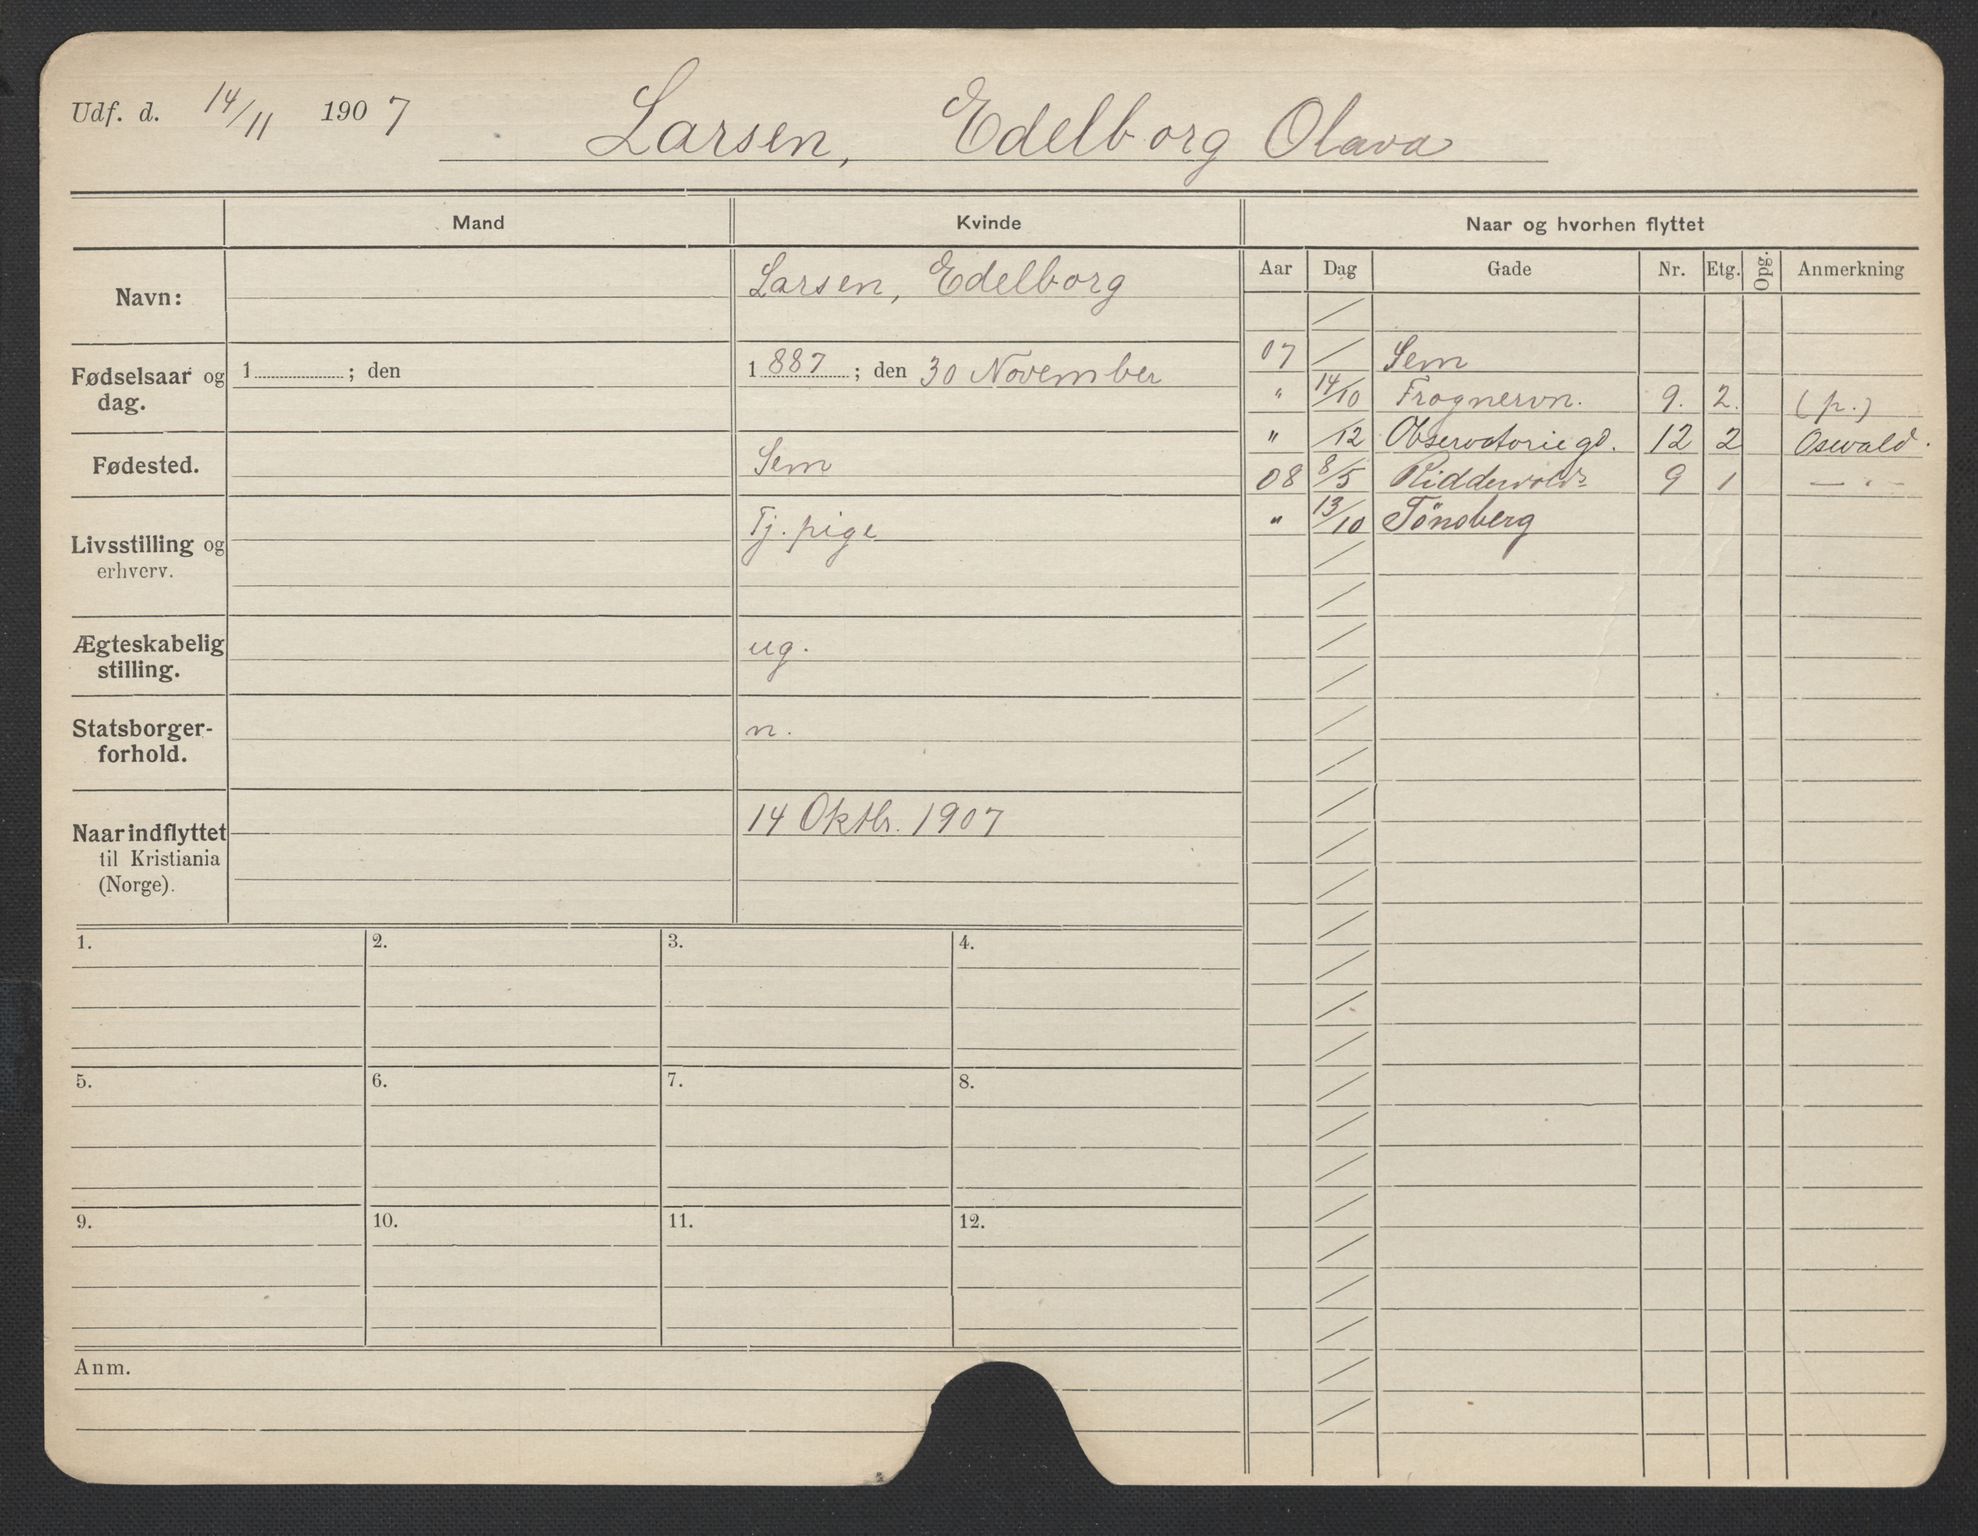 Udf. d. 14/11 1907 Larsen, Edelborg Olava
Mand Kvinde Naar og hvorhen flyttet
Aar Dag Gade Nr. Etg. Opg. Anmerkning
Navn: Larsen, Edelborg
Fødselsaar og dag. 1 ; den 1887 ; den 30 November
Fødested. Sem
Livsstilling og erhverv. Tj. pige
Ægteskabelig stilling. ug.
Statsborger-forhold. n.
Naar indflyttet til Kristiania (Norge). 14 Oktbr. 1907
07 / Sem
" 14/10 Frognervn. 9. 2. (p.)
" /12 Observatoriegd. 12 2 Oswald.
08 8/5 Ridderwolds 9 1 — " —
" 13/10 Tönsberg
1. 2. 3. 4.
5. 6. 7. 8.
9. 10. 11. 12.
Anm.